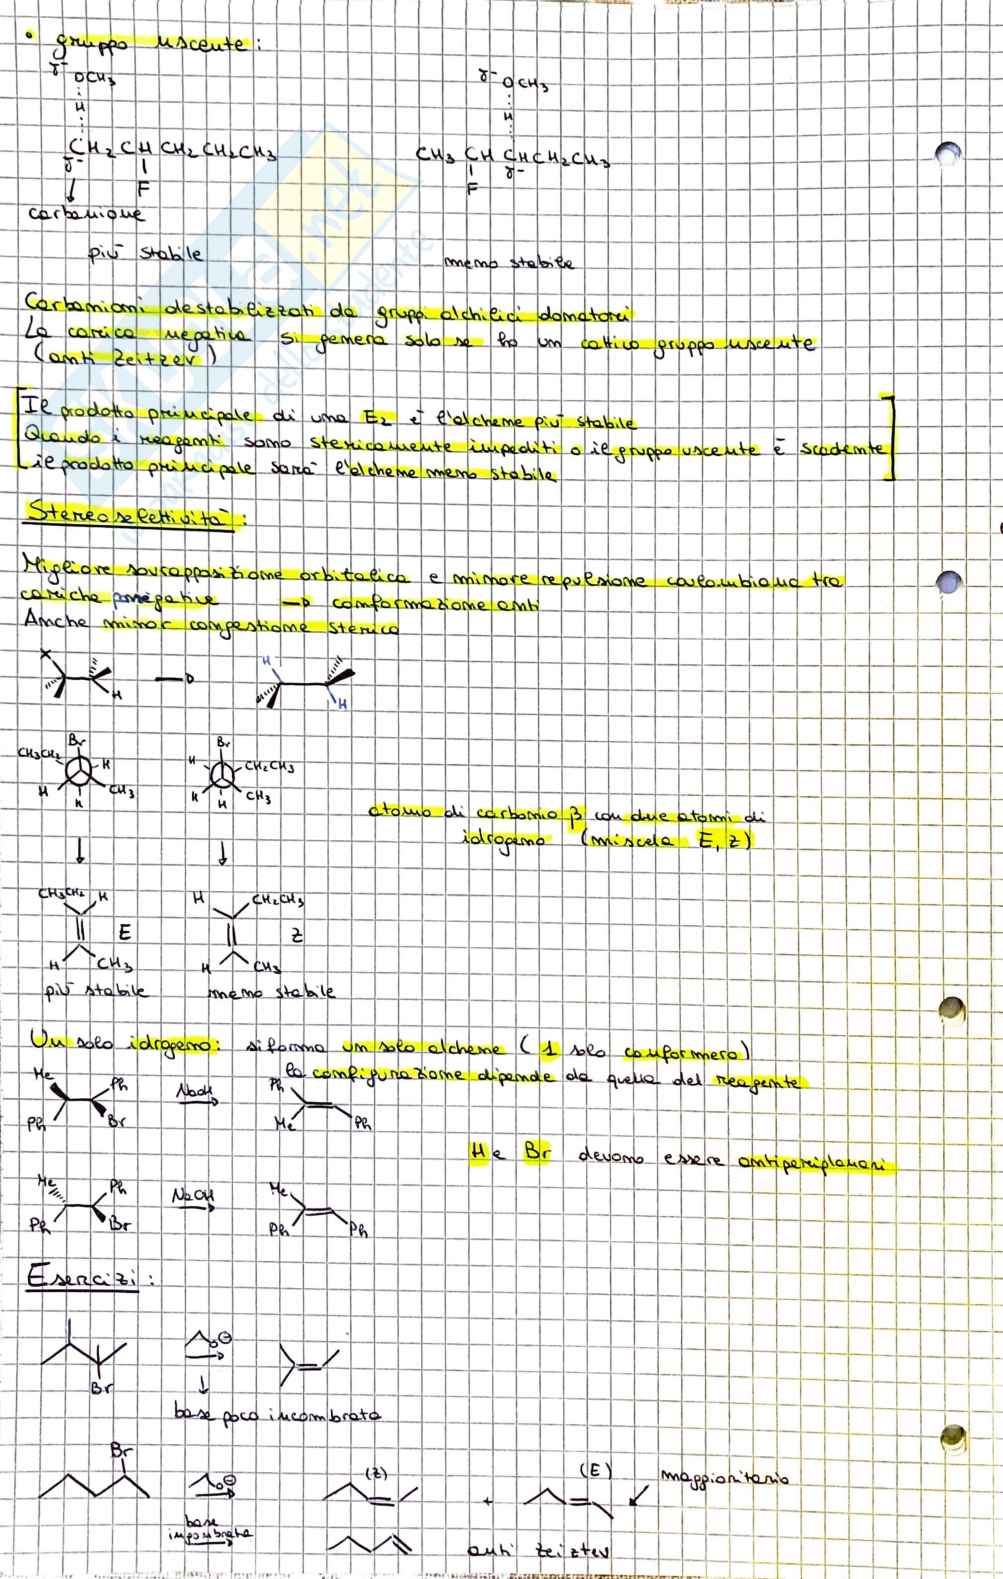 • gruppo uscente:
δ- OCH3
H
CH2 CH CH2 CH2 CH3
δ-
F
carbanione
più stabile
δ- OCH3
H
CH3 CH CHCH2CH3
δ-
F
meno stabile
Carbanioni destabilizzati da gruppi alchilici donatori
La carica negativa si genera solo se ho un cattivo gruppo uscente
(anti Zeitzev)
Il prodotto principale di una E2 è l'alchene più stabile
Quando i reagenti sono stericamente impediti o il gruppo uscente è scadente
il prodotto principale sarà l'alchene meno stabile
Stereoselettività:
Migliore sovrapposizione orbitalica e minore repulsione coulombiana tra
cariche negative → conformazione anti
Anche minor congestione sterica
X
H
H
H
Br
CH3CH2
H
H
H
CH3
Br
H
CH2CH3
H
H
CH3
atomo di carbonio β con due atomi di
idrogeno (miscela E, Z)
CH3CH2 H
E
H CH3
più stabile
H CH2CH3
Z
H CH3
meno stabile
Un solo idrogeno: si forma un solo alchene (1 solo conformero)
la configurazione dipende da quella del reagente
Me Ph
Ph Br
NaOH
Ph
Me Ph
H e Br devono essere antiperiplanari
Me Ph
Ph Br
NaOH
Me
Ph Ph
Esercizi:
Br
O⊖
base poco incombrata
Br
O⊖
base
incombrata
(Z)
+
(E)
maggioritario
anti zeiztev